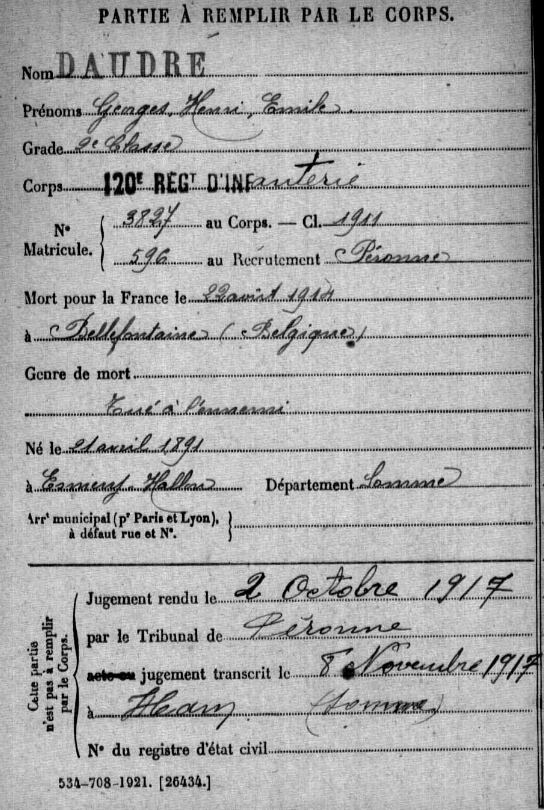 PARTIE À REMPLIR PAR LE CORPS.
Nom DAUDRÉ
Prénoms Georges, Henri, Emile
Grade 2e Classe
Corps 120E REGT D'INFanterie
N° Matricule. 3827 au Corps. — Cl. 1911
596 au Recrutement Péronne
Mort pour la France le 22 août 1914
à Bellefontaine (Belgique)
Genre de mort
Tué à l'ennemi
Né le 21 avril 1891
à Hallon Département Somme
Arrt municipal (pr Paris et Lyon),
à défaut rue et N°.
Cette partie n'est pas à remplir par le Corps.
Jugement rendu le 2 Octobre 1917
par le Tribunal de Péronne
acte ou jugement transcrit le 8 Novembre 1917
à Ham (Somme)
N° du registre d'état civil
534-708-1921. [26434.]